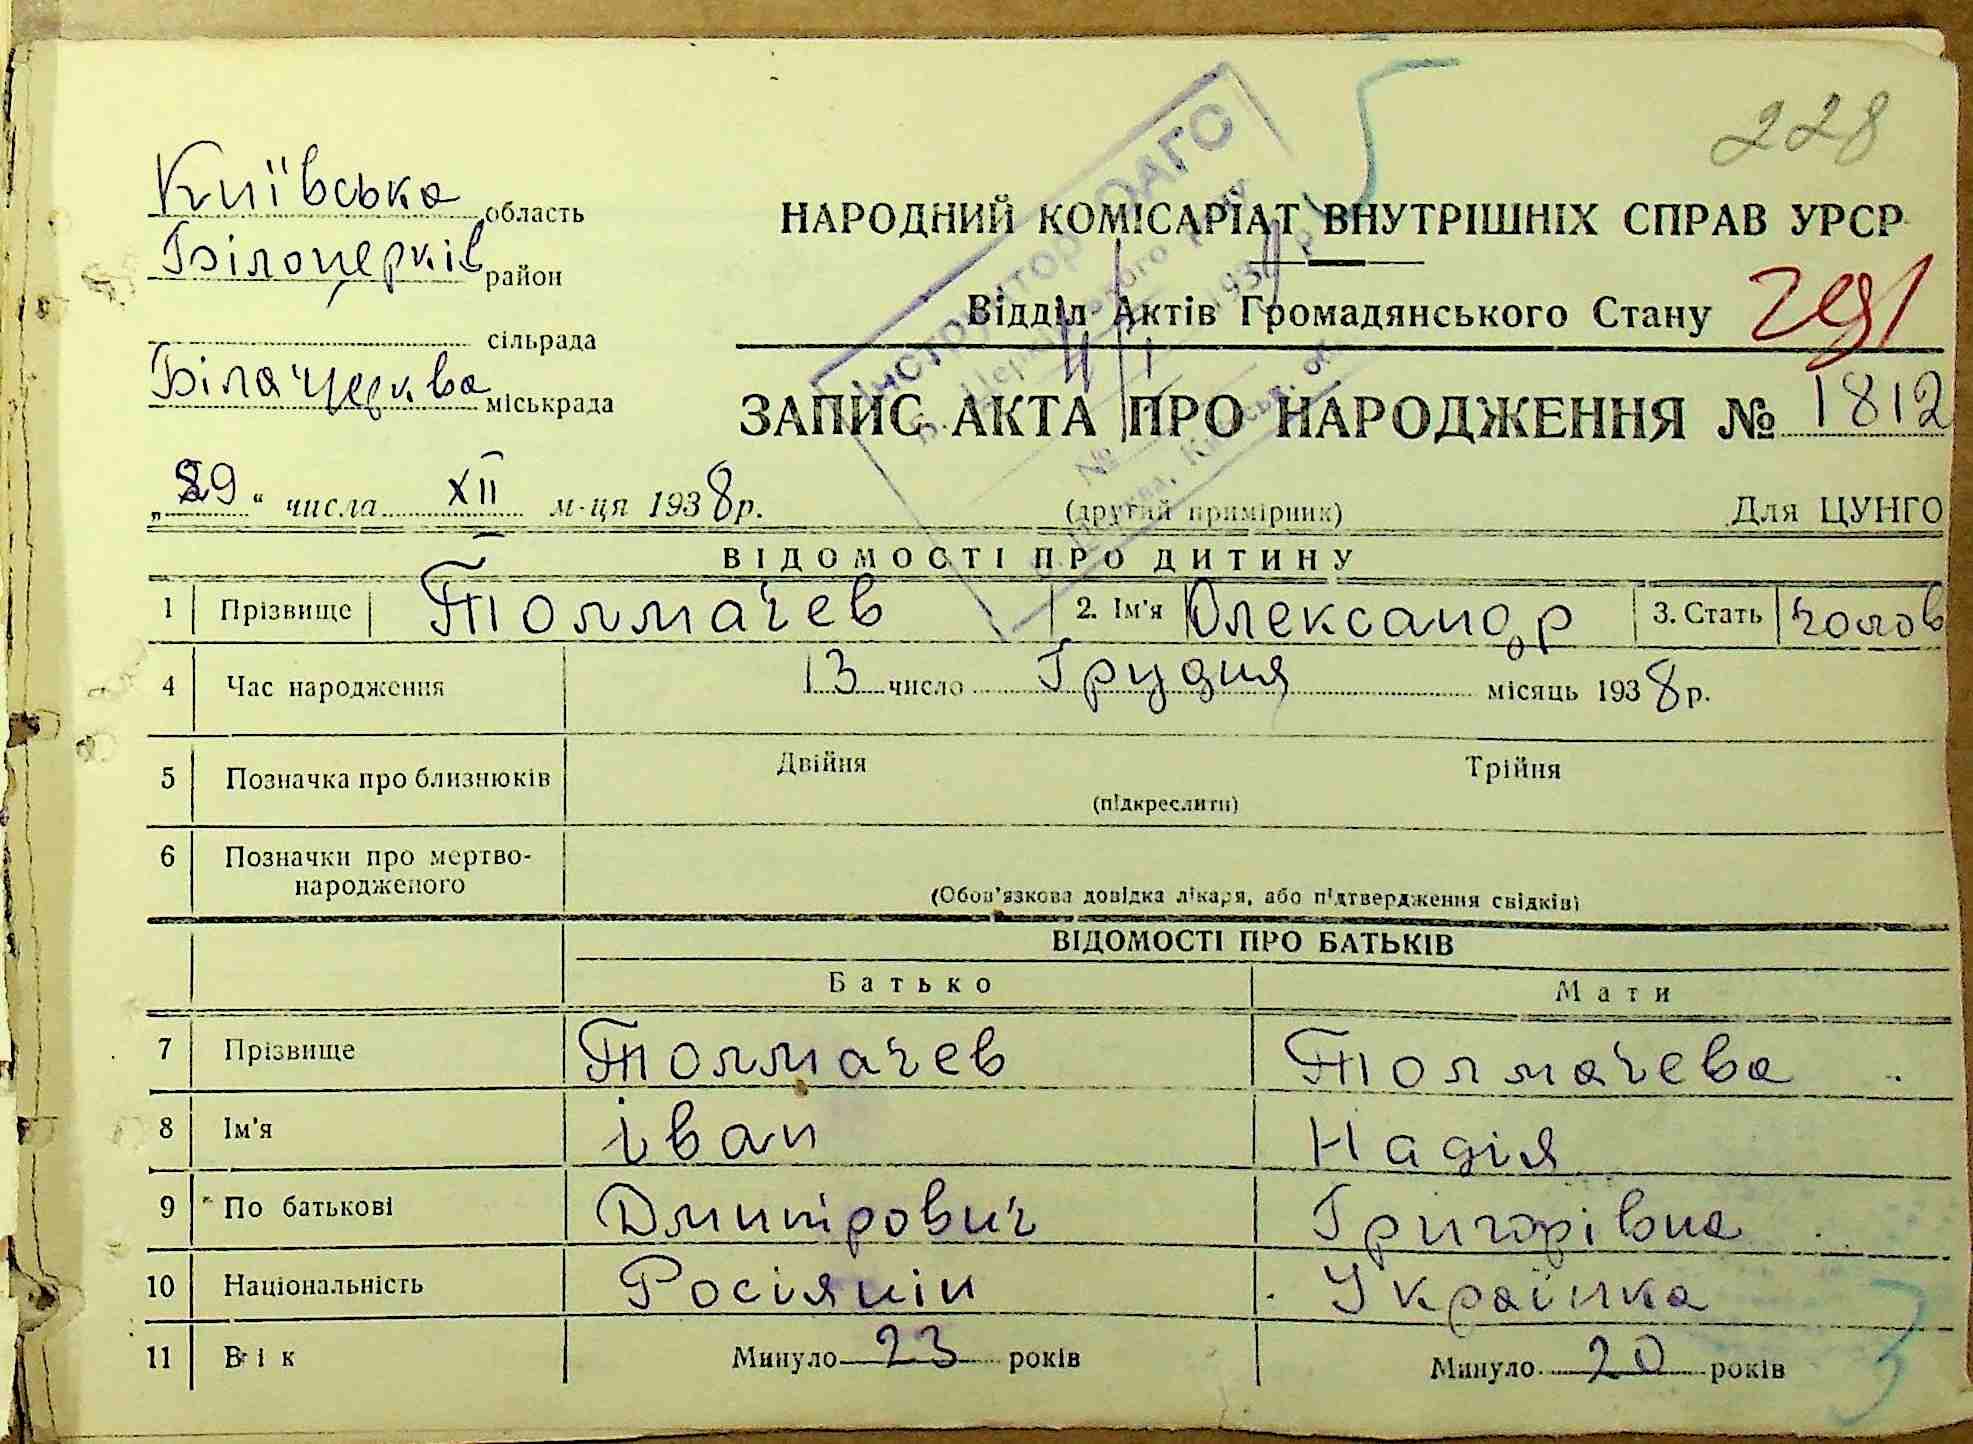 228
Київська область
Білоцерків район
сільрада
Біла Церква міськрада
НАРОДНИЙ КОМІСАРІАТ ВНУТРІШНІХ СПРАВ УРСР
Відділ Актів Громадянського Стану
ЗАПИС АКТА ПРО НАРОДЖЕННЯ № 1812
„29“ числа XII м-ця 1938р.
(другий примірник)
Для ЦУНГО
ВІДОМОСТІ ПРО ДИТИНУ
1 Прізвище Толмачев 2. Ім'я Олександр 3. Стать чолов
4 Час народження 13 число Грудня місяць 1938р.
5 Позначка про близнюків Двійня Трійня
(підкреслити)
6 Позначки про мертво-
народженого
(Обов'язкова довідка лікаря, або підтвердження свідків)
ВІДОМОСТІ ПРО БАТЬКІВ
Батько Мати
7 Прізвище Толмачев Толмачева
8 Ім'я Іван Надія
9 По батькові Дмитрович Григорівна
10 Національність Росіянін Українка
11 Вік Минуло 23 років Минуло 20 років
3